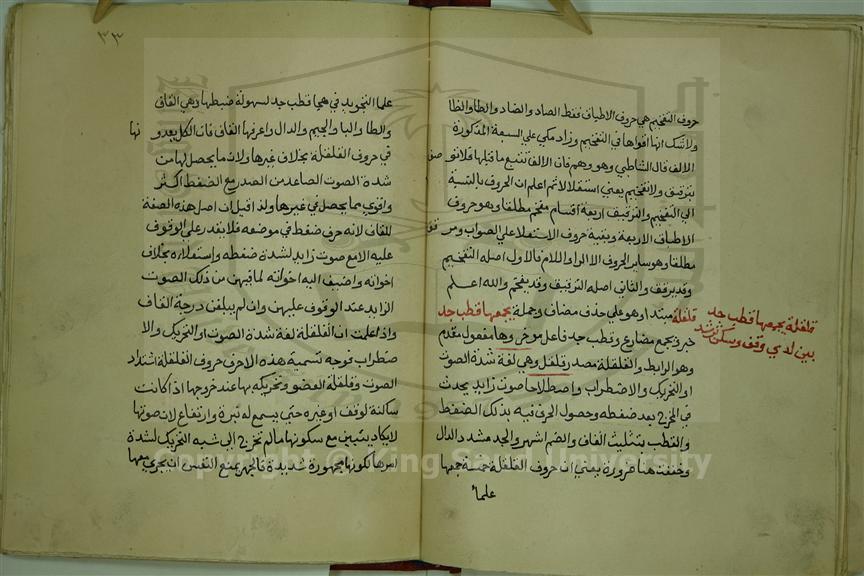 حروف التفخيم هي حروف الاطباق فقط الصاد والضاد والطا والظا
ولا شك انها اقواها في التفخيم وزاد مكي علي السبعة المذكورة
الالف قال الشاطبي وهو وهم فان الالف تتبع ما قبلها فلا توصف
بترقيق ولا تفخيم يعني استقلالا ثم اعلم ان الحروف بالنسبة
الي التفخيم والترقيق اربعة اقسام مفخم مطلقا وهو حروف
الاطباق الاربعة وبقية حروف الاستعلا علي الصواب ومرقق
مطلقا وهو ساير الحروف الا الرا واللام فالاول اصله التفخيم
وقد يرقق والثاني اصله الترقيق وقد يفخم والله اعلم
قلقلة مبتدا وهو علي حذف مضاف وجملة يجمعها قطب جد
خبر ويجمع مضارع وقطب جد فاعل موخر وها مفعول مقدم
وهو الرابط والقلقلة مصدر قلقل وهي لغة شدة الصوت
او التحريك والاضطراب واصطلاحا صوت زايد يحدث
في المخرج بعد ضغطه وحصول الحرف فيه بذلك الضغط
والقطب بتثليث القاف والضم اشهر والجد مشدد الدال
وخففت هنا ضرورة يعني ان حروف القلقلة خمسة جمعها
علما
قلقلة يجمعها قطب جد
بين لدي وقف وسكن ترشد
٣٣
علما التجويد في هجا قطب جد لسهولة ضبطها وهي القاف
والطا والبا والجيم والدال واعرفها القاف فان الكل يعدونها
في حروف القلقلة بخلاف غيرها ولان ما يحصل لها من
شدة الصوت الصاعد من الصدر مع الضغط اكثر
واقوي مما يحصل في غيرها ولذا قيل ان اصل هذه الصفة
للقاف لانه حرف ضغط في موضعه فلا يقدر علي الوقوف
عليه الا مع صوت زايد لشدة ضغطه واستعلاءه بخلاف
اخواته واضيف اليه اخواته لما فيهن من ذلك الصوت
الزايد عند الوقوف عليهن وان لم يبلغن درجة القاف
واذا علمت ان القلقلة لغة شدة الصوت او التحريك والا
ضطراب فوجه تسمية هذه الاحرف حروف القلقلة اشتداد
الصوت وقلقلة العضو وتحريكه بها عند خروجها اذا كانت
ساكنة لوقف او غيره حتي يسمع له نبرة وارتفاع لان صوتها
لا يكاد يتبين مع سكونها ما لم تخرج الي شبه التحريك لشدة
امرها لكونها مجهورة شديدة فالجهر يمنع النفس ان يجري معها
Copyright © King Saud University